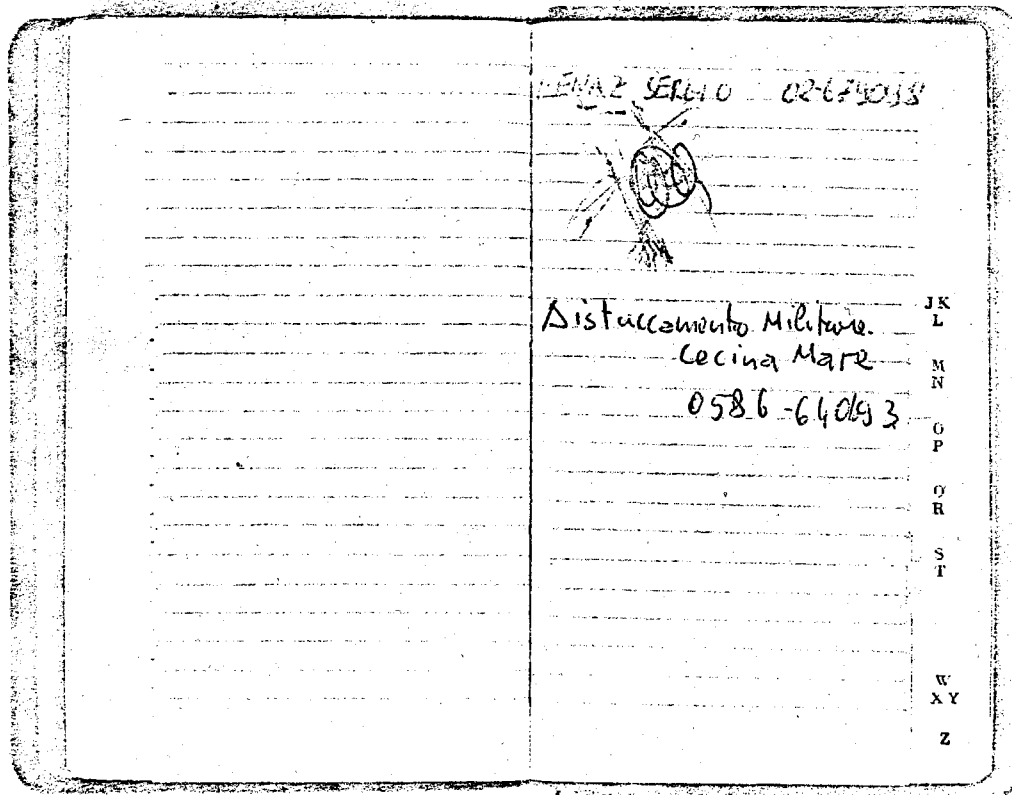 LENAZ SERGIO 02-6749098
Distaccamento Militare
Cecina Mare
0586-640193
JK
L
M
N
O
P
Q
R
S
T
W
X Y
Z